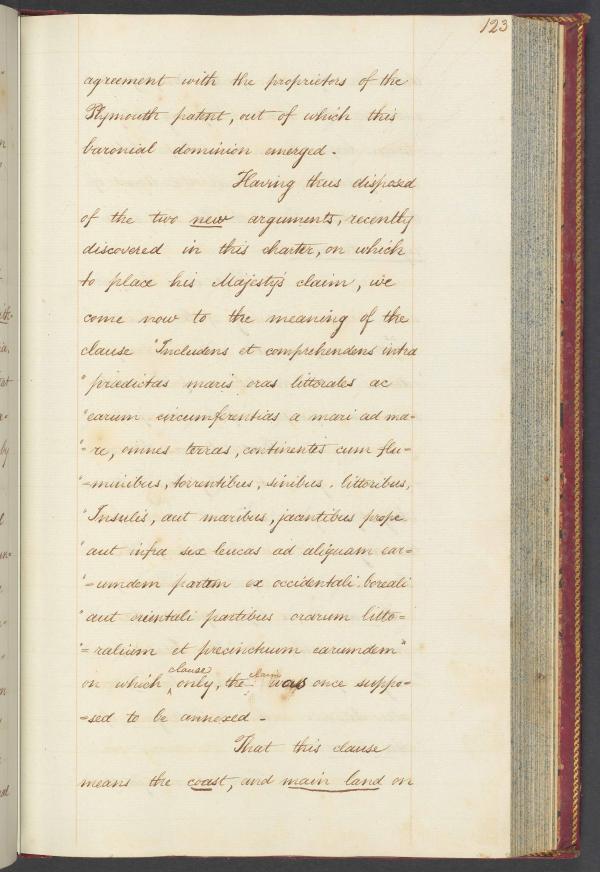 123
agreement with the proprietors of the
Plymouth patent, out of which this
baronial dominion emerged.
Having thus disposed
of the two new arguments, recently
discovered in this charter, on which
to place his Majesty's claim, we
come now to the meaning of the
clause "Includens et comprehendens intra
"prædictas maris oras littorales ac
"earum circumferentias a mari ad ma=
"=re, omnes terras, continentes cum flu=
"=minibus, torrentibus, sinibus, littoribus,
"Insulis, aut maribus, jacentibus prope
"aut infra sex leucas ad aliquam ear=
"=umdem partem ex occidentali boreali
"aut orientali partibus orarum litto=
"=ralium et precinctuum earumdem"
on which clause only, the claim was once suppo=
=sed to be annexed.
That this clause
means the coast, and main land on